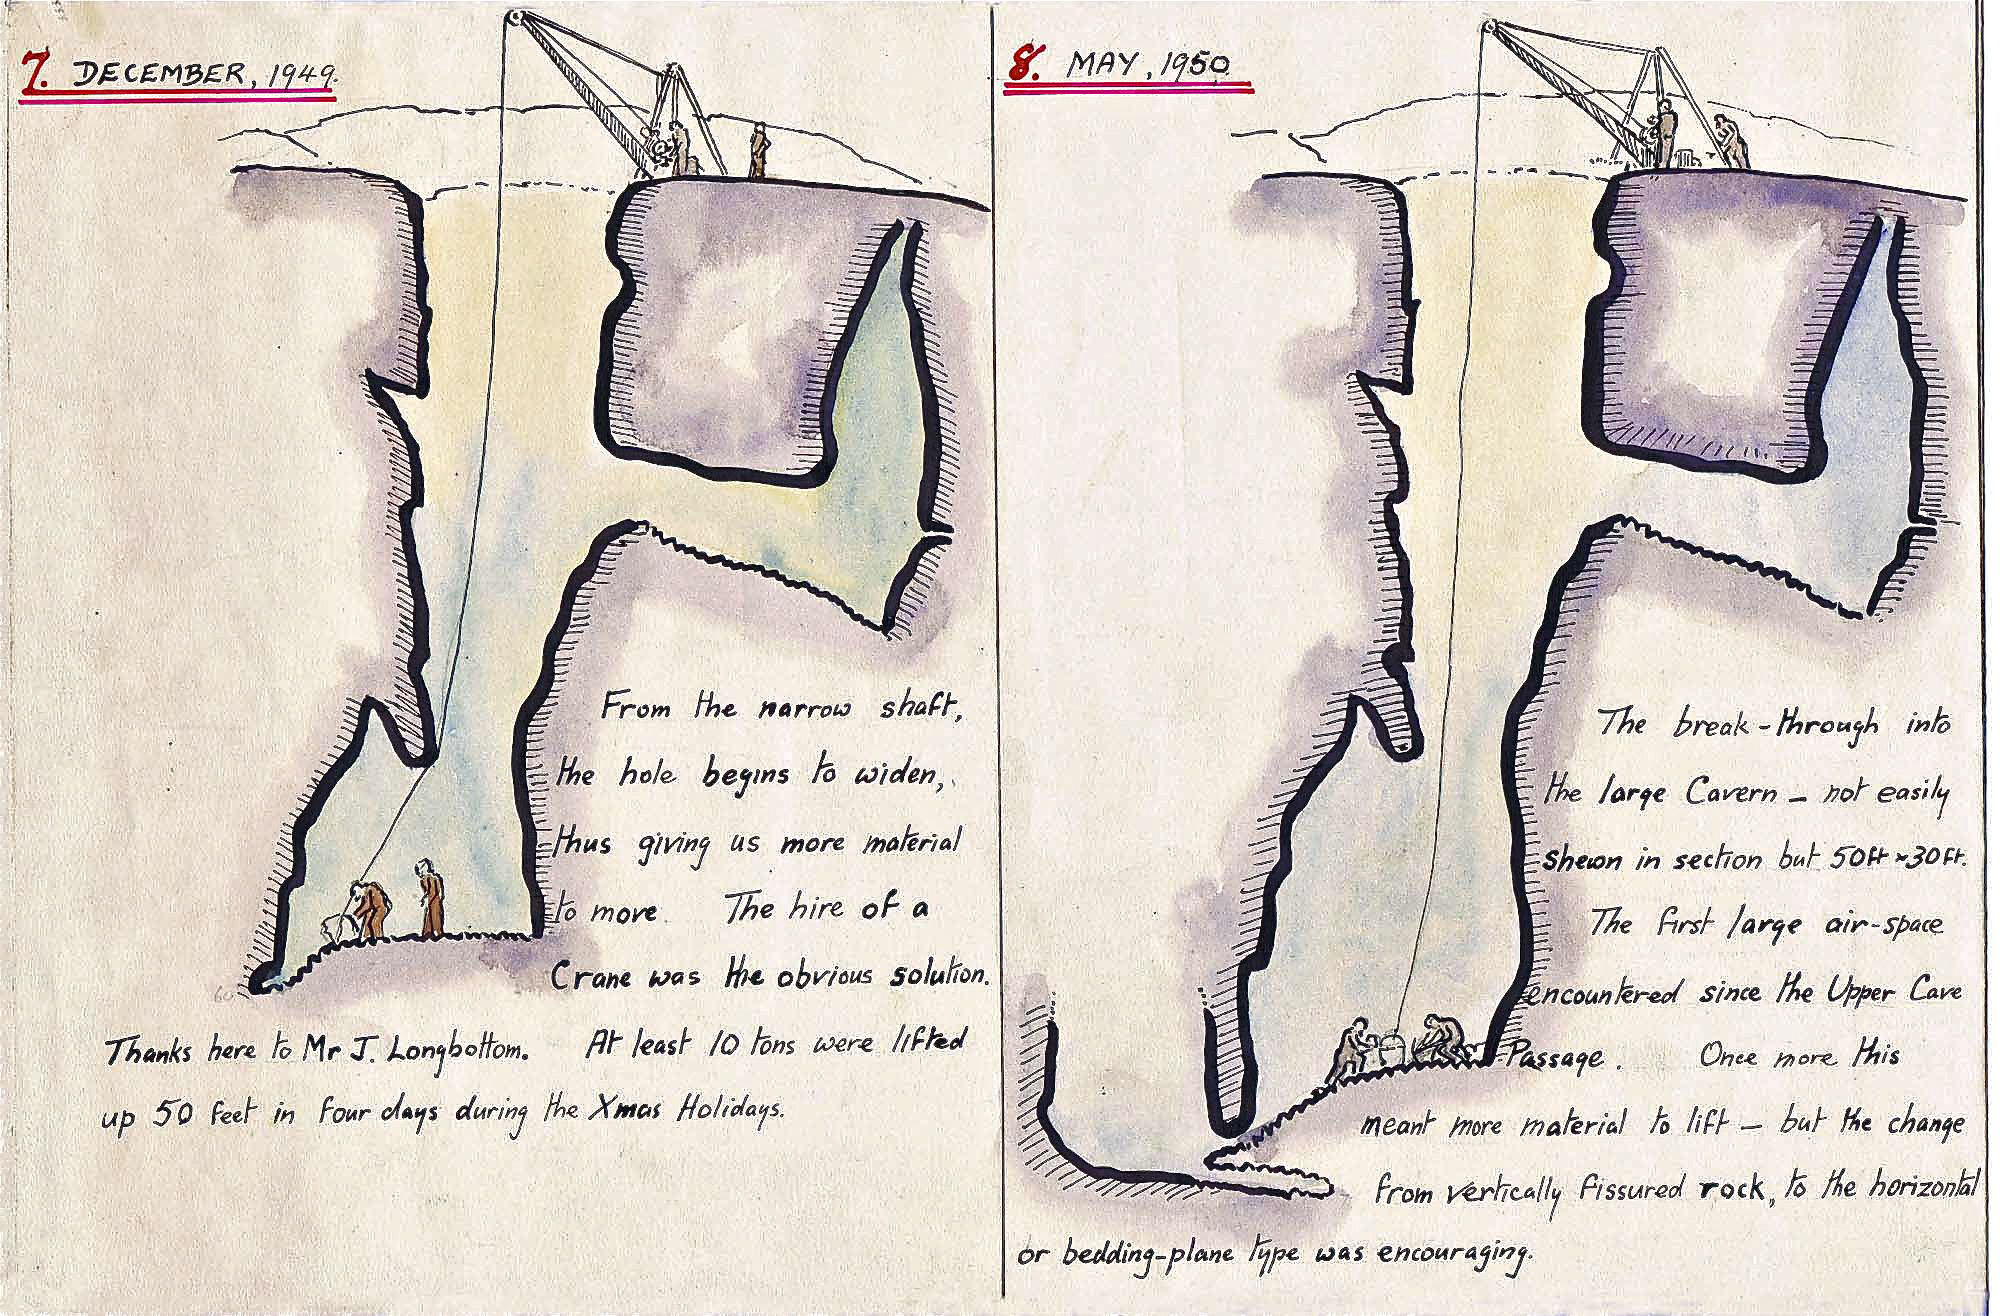 7. DECEMBER, 1949.
From the narrow shaft,
the hole begins to widen,
thus giving us more material
to more. The hire of a
Crane was the obvious solution.
Thanks here to Mr J. Longbottom. At least 10 tons were lifted
up 50 feet in four days during the Xmas Holidays.
8. MAY, 1950.
The break-through into
the large Cavern – not easily
shewn in section but 50ft × 30ft.
The first large air-space
encountered since the Upper Cave
Passage. Once more this
meant more material to lift – but the change
from vertically fissured rock, to the horizontal
or bedding-plane type was encouraging.